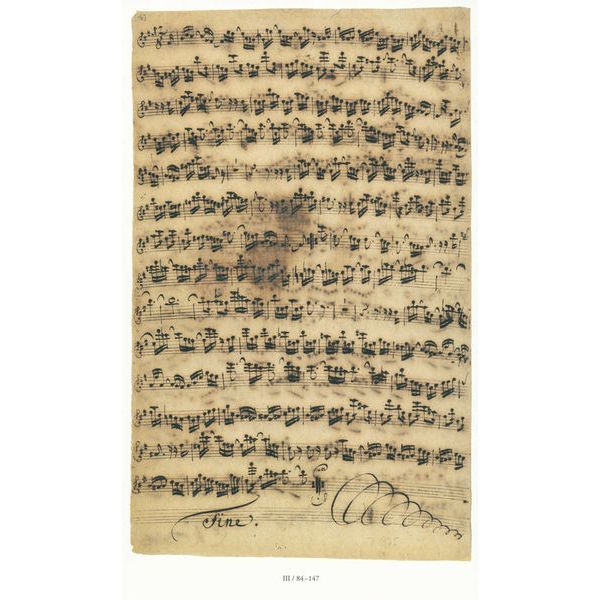 Fine.
III / 84–147